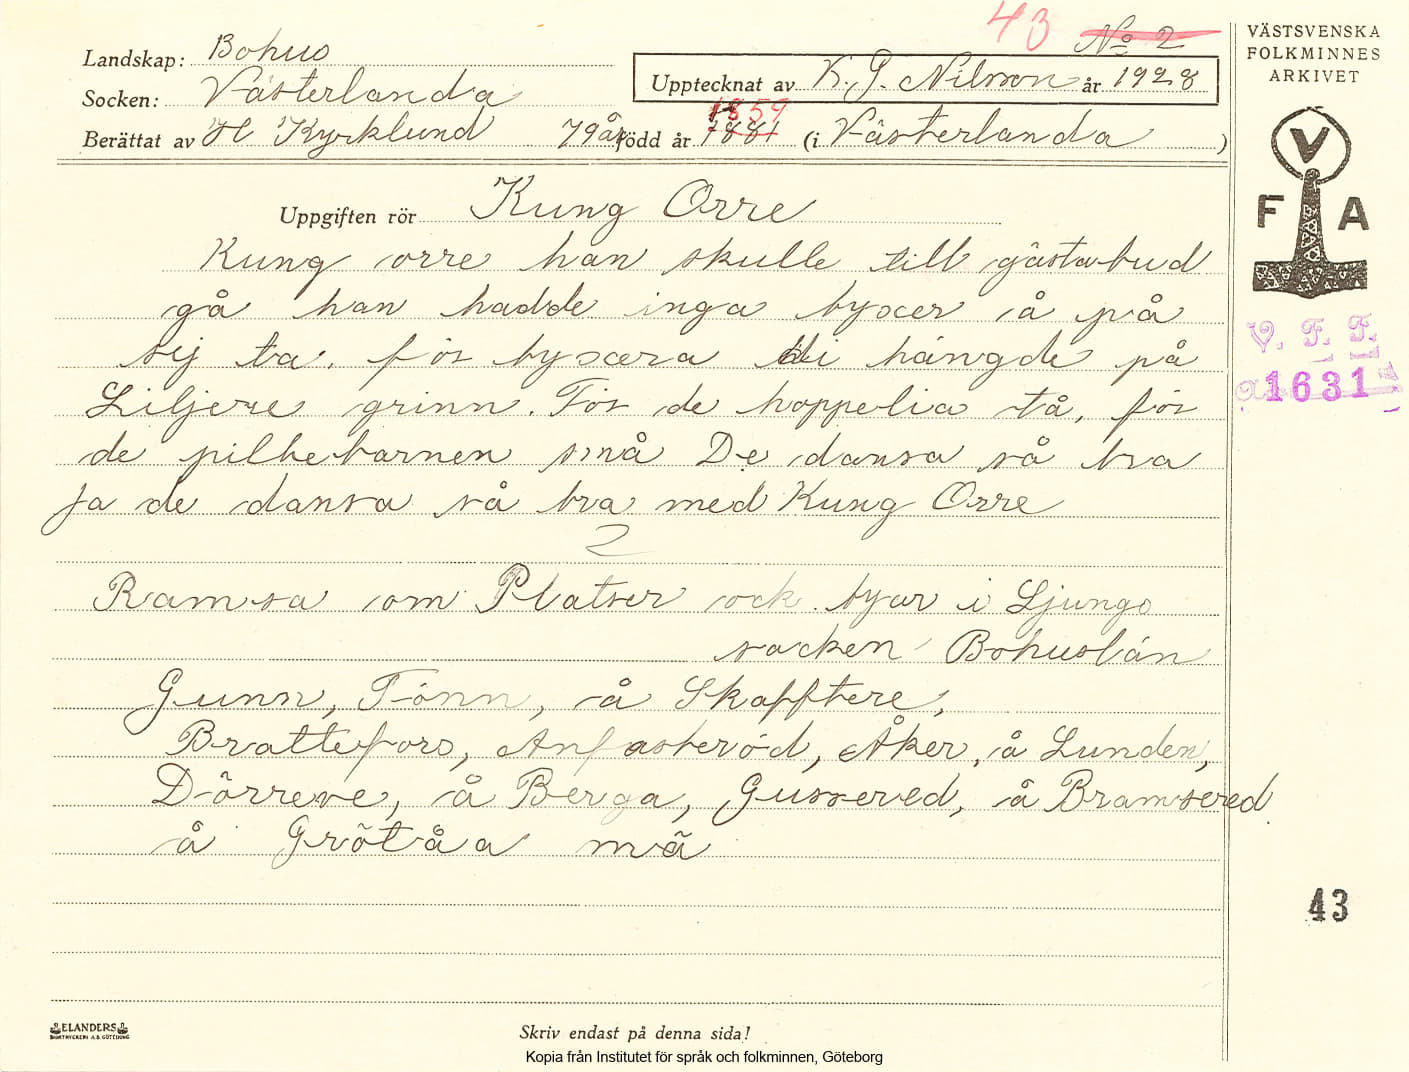 43 No 2
VÄSTSVENSKA
FOLKMINNES
ARKIVET
Landskap: Bohus
Upptecknat av K. G. Nilsson år 1928
Socken: Västerlanda
1859
Berättat av H Kyrklund 79 år född år 1881 (i Västerlanda )
V
F A
Uppgiften rör Kung Orre
Kung orre han skulle till gästabud
gå han hadde inga byxer å på
sej ta. för byxera di hängde på
Liljere grinn. För de hoppelia tå, för
de pilkebarnen små De dansa så bra
ja de dansa så bra med Kung Orre
2
Ramsa om Platser ock byar i Ljungs
socken Bohuslän
Gunn, Tönn, å Skafftere,
Brattefors, Anfasteröd, Åker, å Lunden,
Dörreve, å Berga, Gussered, å Bramsered
å Grötåa må
V. F. F.
a1631
43
ELANDERS
BOKTRYCKERI A.B. GÖTEBORG
Skriv endast på denna sida!
Kopia från Institutet för språk och folkminnen, Göteborg